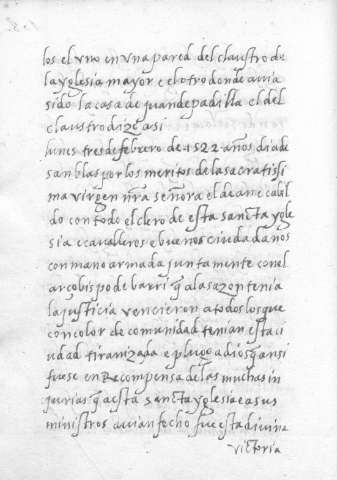 los el vno en vna pared del claustro de
la yglesia mayor e el otro donde avia
sido la casa de juan de padilla el del
claustro dize asi
lunes tres de febrero de 1522 años dia de
san blas por los meritos de la sacratisi
ma virgen nra señora el dean e cabil
do con todo el clero de esta sancta ygle
sia e cavalleros e buenos ciudadanos
con mano armada juntamente con el
arçobispo de barri q a la sazon tenia
la justicia vencieron a todos los que
con color de comunidad tenian esta ci
udad tiranizada e plugo a dios q ansi
fuese en Recompensa de las muchas in
jurias q a esta sancta yglesia e a sus
ministros avian fecho fue esta divina
victoria